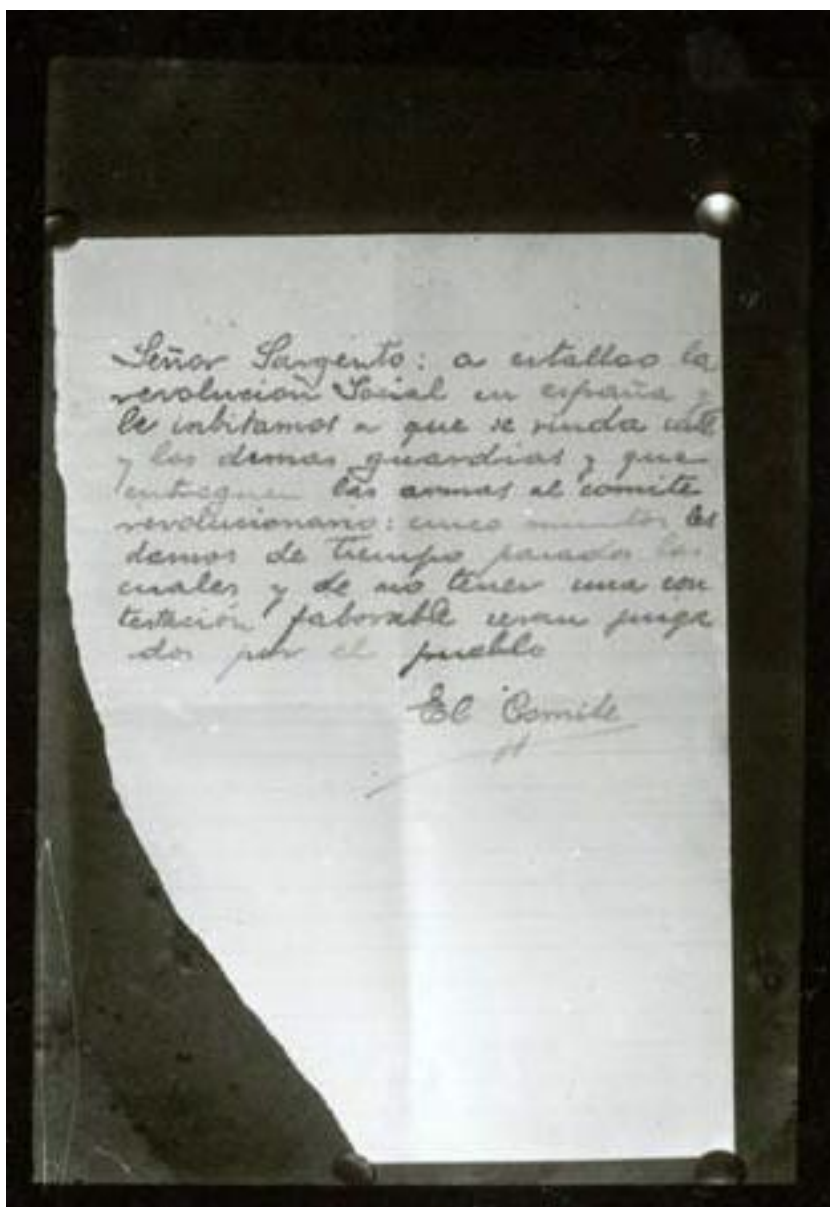 Señor Sargento: a estallao la
revolucion Social en españa y
le inbitamos a que se rinda uste
y los demas guardias y que
entreguen las armas al comite
revolucionario: cinco minutos les
damos de tiempo pasados los
cuales y de no tener una con
testación faborable seran juzga
dos por el pueblo
El Comite